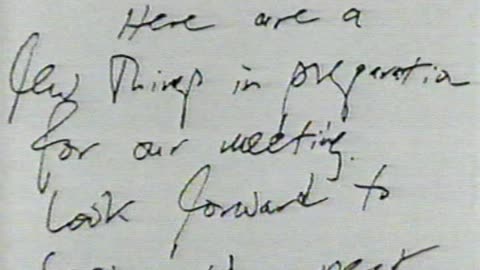 Here are a
few Things in preparation
for our meeting.
Look forward to